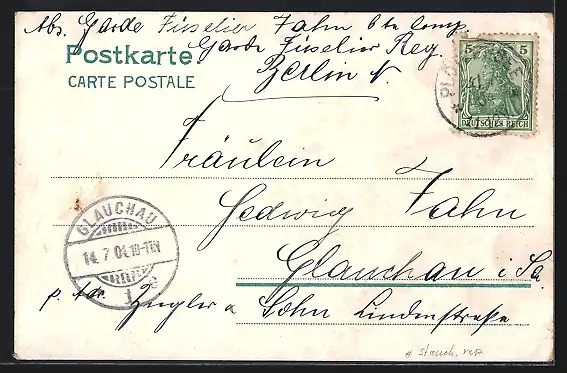 Abs. Garde Füselier Fahn 6te Comp.
Garde Füselier Reg.
Berlin N.
Postkarte
CARTE POSTALE
5 5
DEUTSCHES REICH
Fräulein
Hedwig Fahn
Glauchau i. Sa.
p. adr. Ziegler & Sohn Lindenstraße
GLAUCHAU
14.7.04.10-11V
1
stauch. rep.